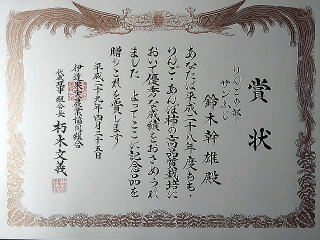 賞状
りんごの部
サンふじ
鈴木幹雄殿
あなたは平成二十八年度もも・
りんご・あんぽ柿の高品質栽培に
おいて優秀な成績をおさめられ
ました よってここに記念品を
贈りこれを賞します
平成二十九年四月二十五日
伊達果実農業協同組合
代表理事組合長 朽木文義